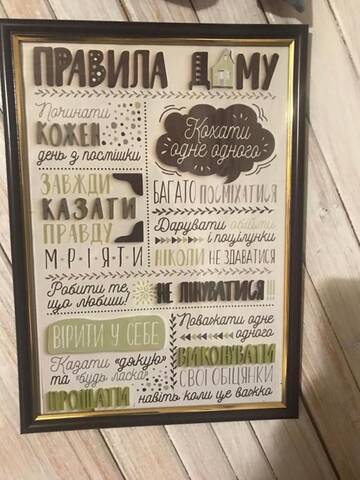 ПРАВИЛА ДОМУ
Починати
КОЖЕН
день з посмішки
Кохати
одне одного
ЗАВЖДИ
КАЗАТИ
ПРАВДУ
МРІЯТИ
БАГАТО ПОСМІХАТИСЯ
Дарувати обійми
і поцілунки
НІКОЛИ НЕ ЗДАВАТИСЯ
Робити те,
що любиш!
НЕ ЛІНУВАТИСЯ!!!
ВІРИТИ У СЕБЕ
Казати "дякую"
та "будь ласка"
ПРОЩАТИ
Поважати одне
одного
ВИКОНУВАТИ
СВОЇ ОБІЦЯНКИ
навіть коли це важко